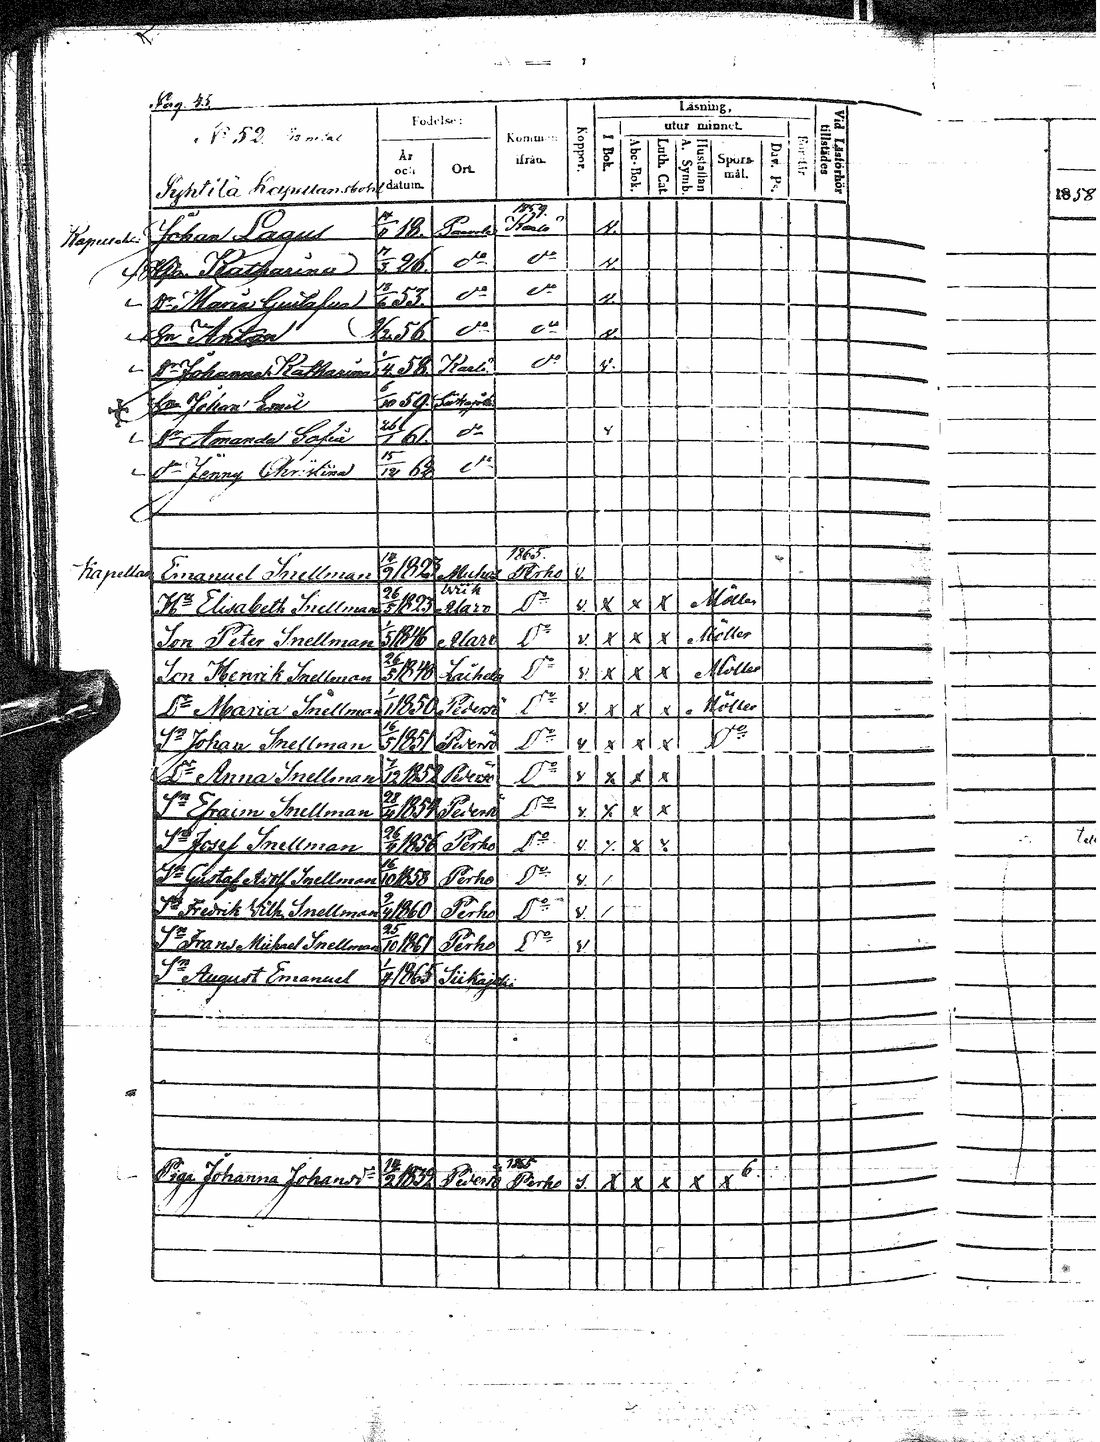 Pag. 45
Läsning,
Födelse:
utur minnet.
Kommen ifrån.
Koppor.
I Bok.
Abc-Bok.
Luth. Cat.
Hustaflan A. Symb.
Spörsmål.
Dav. Ps.
Förstår
Vid Läsförhör tillstädes
N:o 52.
År och datum.
Ort.
Kapellansbohl
1858
Johan Lagus 18. 1859 Karlö
Katharina 7/3 26. do do
Dr Maria Gustafva 18/6 53. do do
Sn Anton 56. do do
Dr Johanna Katharina 1/4 58. Karlö do
Sn Johan Emil 6/10 59. Siikajoki
Dr Amanda Sofia 26/1 61. do
dr Jenny Christina 15/12 62 do
Kapellan Emanuel Snellman 14/9 1823 1865. Perho v.
Hu Elisabeth Snellman 26/5 1823 Alavo Do v. x x x Möller
Son Peter Snellman 1/5 1846 Alavo Do v. x x x Möller
Son Henrik Snellman 26/5 1848 Laihela Do v. x x x Möller
Dr Maria Snellman 1/1 1850 Pedersö Do v. x x x Möller
Sn Johan Snellman 16/5 1851 Pedersö Do v x x x Do
Dr Anna Snellman 7/12 1852 Pedersö Do v x x x
Sn Efraim Snellman 28/4 1854 Pedersö Do v. x x x
Sn Josef Snellman 26/4 1856 Perho Do v. x x x
Sn Gustaf Adolf Snellman 16/10 1858 Perho Do v. /
Sn Fredrik Vilh. Snellman 9/4 1860 Perho Do v. /
Sn Frans Mickael Snellman 25/10 1861 Perho Do v.
Sn August Emanuel 1/4 1865 Siikajoki
Piga Johanna Johansdr 14/2 1832 Pedersö 1865 Perho s. x x x x x 6.